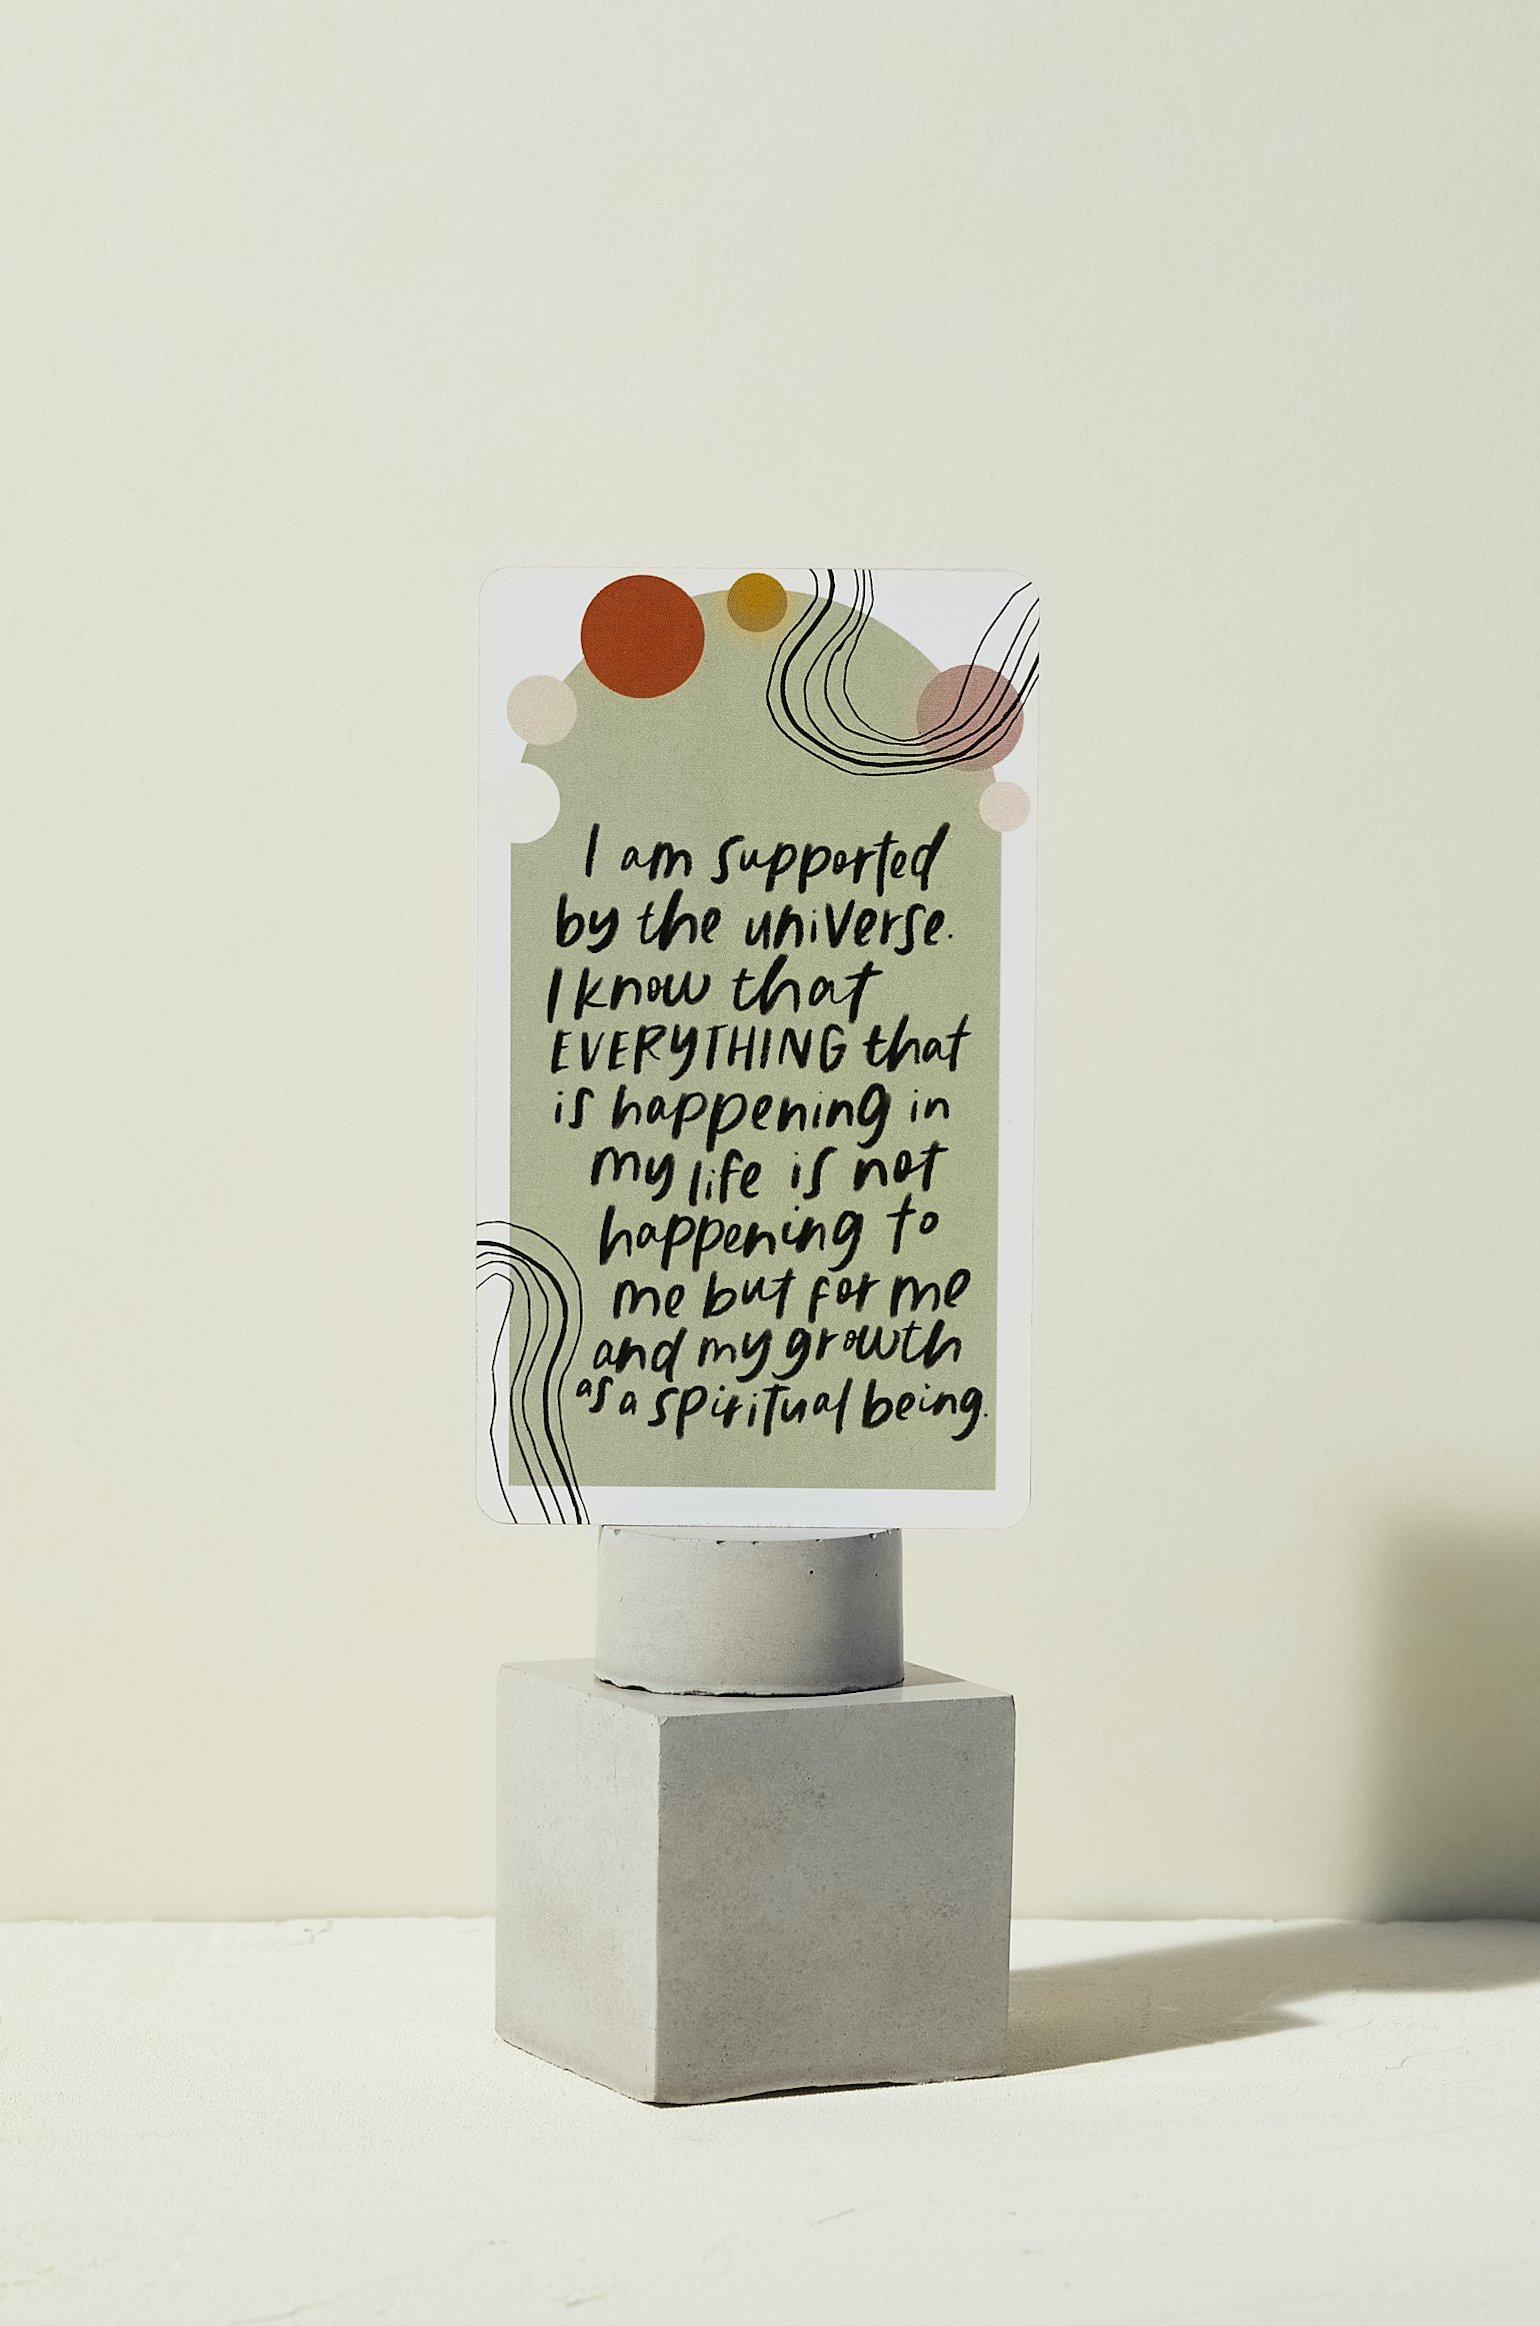 I am supported
by the universe.
I know that
EVERYTHING that
is happening in
my life is not
happening to
me but for me
and my growth
as a spiritual being.